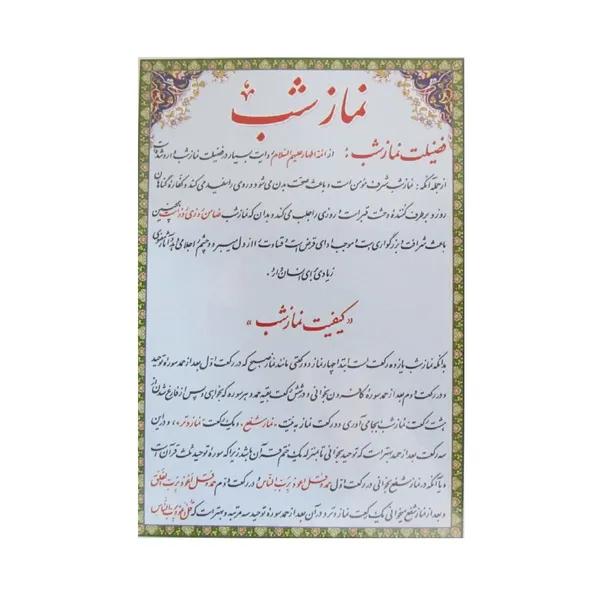 نماز شب
فضیلت نماز شب : از ائمه اطهار علیهم السلام روایت بسیار در فضیلت نماز شب وارد شده است
از جمله آنکه : نماز شب شرف مؤمن است و باعث صحت بدن می شود و روی را سفید می کند و کفاره گناهان
روز و برطرف کننده وحشت قبر است و روزی را جلب می کند و بدان که نماز شب ضامن روزی روز است همچنین
باعث شرافت و بزرگواری است و موجب ادای قرض است و قساوت را از دل میبرد و چشم را جلا می دهد و آثار معنوی
زیادی برای انسان دارد .
« کیفیت نماز شب »
بدانکه نماز شب یازده رکعت است ابتدا چهار نماز دو رکعتی مانند نماز صبح که در رکعت اول بعد از حمد سوره توحید
و در رکعت دوم بعد از حمد سوره کافرون بخوانی و در شش رکعت بقیه حمد و هر سوره که بخواهی و پس از فارغ شدن از
هشت رکعت نماز شب بجا می آوری دو رکعت نماز به نیت «نماز شفع» و یک رکعت «نماز وتر» و در این
سه رکعت بعد از حمد بهتر است که توحید بخوانی تا بمنزله یک ختم قرآن باشد زیرا که سوره توحید ثلث قرآن است
و یا آنکه در نماز شفع بخوانی در رکعت اول حمد و قل اعوذ برب الناس و در رکعت دوم حمد و قل اعوذ برب الفلق
و بعد از نماز شفع میخوانی یک رکعت نماز وتر و در آن بعد از حمد سوره توحید سه مرتبه و بهتر است که قل اعوذ برب الناس